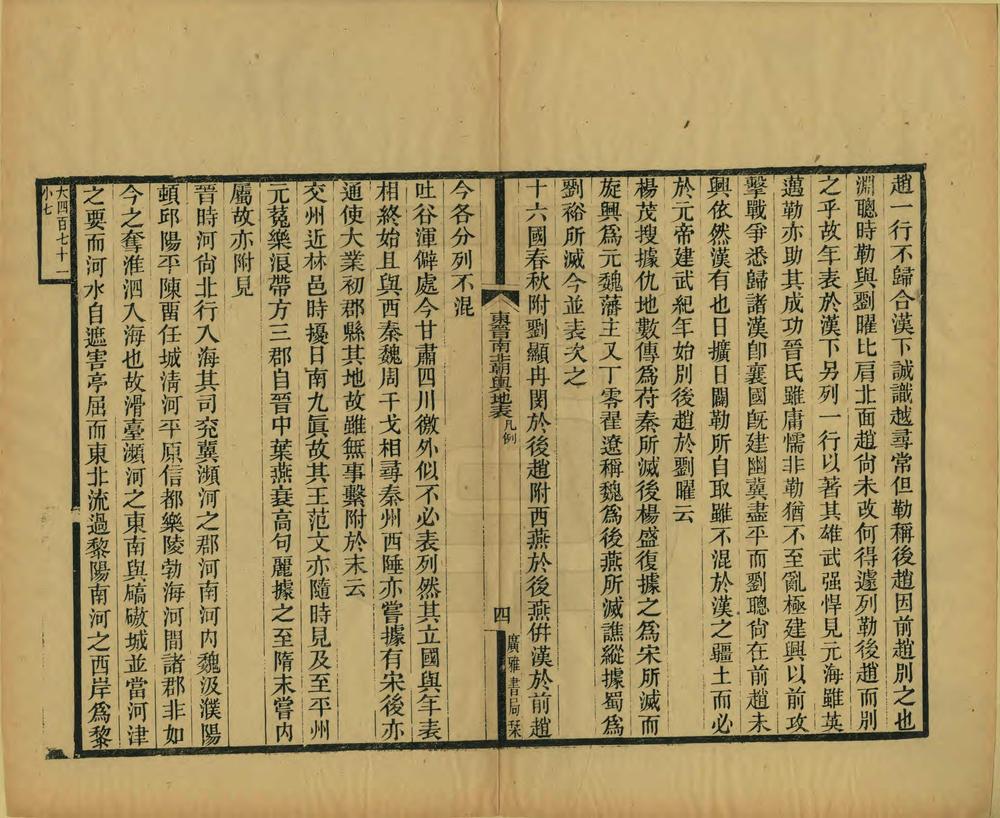 趙一行不歸合漢下誠識越尋常但勒稱後趙因前趙別之也
淵聰時勒與劉曜比肩北面趙尙未改何得遽列勒後趙而別
之乎故年表於漢下另列一行以著其雄武强悍見元海雖英
邁勒亦助其成功晉氏雖庸懦非勒猶不至亂極建興以前攻
擊戰爭悉歸諸漢卽襄國旣建幽冀盡平而劉聰尙在前趙未
興依然漢有也日擴日闢勒所自取雖不混於漢之疆土而必
於元帝建武紀年始別後趙於劉曜云
楊茂搜據仇地數傳爲苻秦所滅後楊盛復據之爲宋所滅而
旋興爲元魏藩主又丁零翟遼稱魏爲後燕所滅譙縱據蜀爲
劉裕所滅今並表次之
十六國春秋附劉顯冉閔於後趙附西燕於後燕倂漢於前趙
東晉南北朝輿地表 凡例 四 廣雅書局栞
今各分列不混
吐谷渾僻處今甘肅四川徼外似不必表列然其立國與年表
相終始且與西秦魏周干戈相尋秦州西陲亦嘗據有宋後亦
通使大業初郡縣其地故雖無事繫附於末云
交州近林邑時擾日南九眞故其王范文亦隨時見及至平州
元菟樂浪帶方三郡自晉中葉燕衰高句麗據之至隋末嘗內
屬故亦附見
晉時河尙北行入海其司兖冀瀕河之郡河南河內魏汲濮陽
頓邱陽平陳畱任城淸河平原信都樂陵勃海河間諸郡非如
今之奪淮泗入海也故滑臺瀕河之東南與碻磝城並當河津
之要而河水自遮害亭屈而東北流過黎陽南河之西岸爲黎
大四百七十一
小七